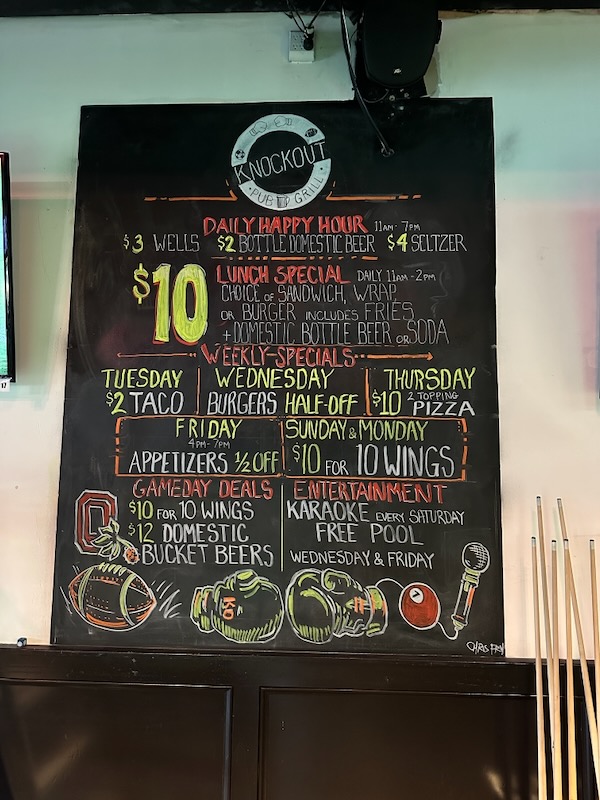 KNOCKOUT
PUB GRILL
DAILY HAPPY HOUR 11AM-7PM
$3 WELLS $2 BOTTLE DOMESTIC BEER $4 SELTZER
$10
LUNCH SPECIAL DAILY 11AM-2PM
CHOICE OF SANDWICH, WRAP,
OR BURGER INCLUDES FRIES
+ DOMESTIC BOTTLE BEER OR SODA
WEEKLY-SPECIALS
TUESDAY
$2 TACO
WEDNESDAY
BURGERS HALF-OFF
THURSDAY
$10 2 TOPPING PIZZA
FRIDAY
4PM-7PM
APPETIZERS 1/2 OFF
SUNDAY & MONDAY
$10 FOR 10 WINGS
GAMEDAY DEALS
$10 FOR 10 WINGS
$12 DOMESTIC
BUCKET BEERS
ENTERTAINMENT
KARAOKE EVERY SATURDAY
FREE POOL
WEDNESDAY & FRIDAY
KO
7
17